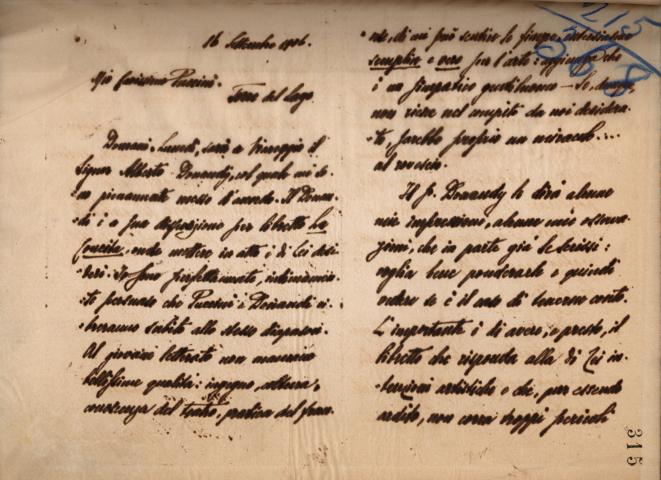 16 Settembre 1906.
Mio carissimo Puccini.
Torre del Lago
Domani, Lunedì, sarà a Viareggio il
Signor Alberto Donaudy, col quale mi so-
no pienamente messo d'accordo. Il Donau-
di è a sua disposizione pel libretto La
Conchita, onde mettere in atto i di Lei desi-
deri. Io sono perfettamente, intimamen-
te persuaso che Puccini e Donaudi vi-
breranno subito allo stesso diapason.
Al giovane letterato non mancano
bellissime qualità: ingegno, coltura,
conoscenza del teatro, pratica del fran-
ese, di cui può sentire le finezze, entusiasmo
semplice e vero per l'arte: aggiunga che
è un simpatico gentiluomo — Se, dunque,
non riesce nel compito da noi desidera-
to, sarebbe proprio un miracolo....
al rovescio.
Il Sr. Donaudy le dirà alcune
mie impressioni, alcune mie osserva-
zioni, che in parte già Le scrissi:
voglia bene ponderarle e quindi
vedere se è il caso di tenerne conto.
L'importante è di avere, e presto, il
libretto che risponda alle di Lei in-
tenzioni artistiche e che, pur essendo
ardito, non corra troppi pericoli
215
368
315